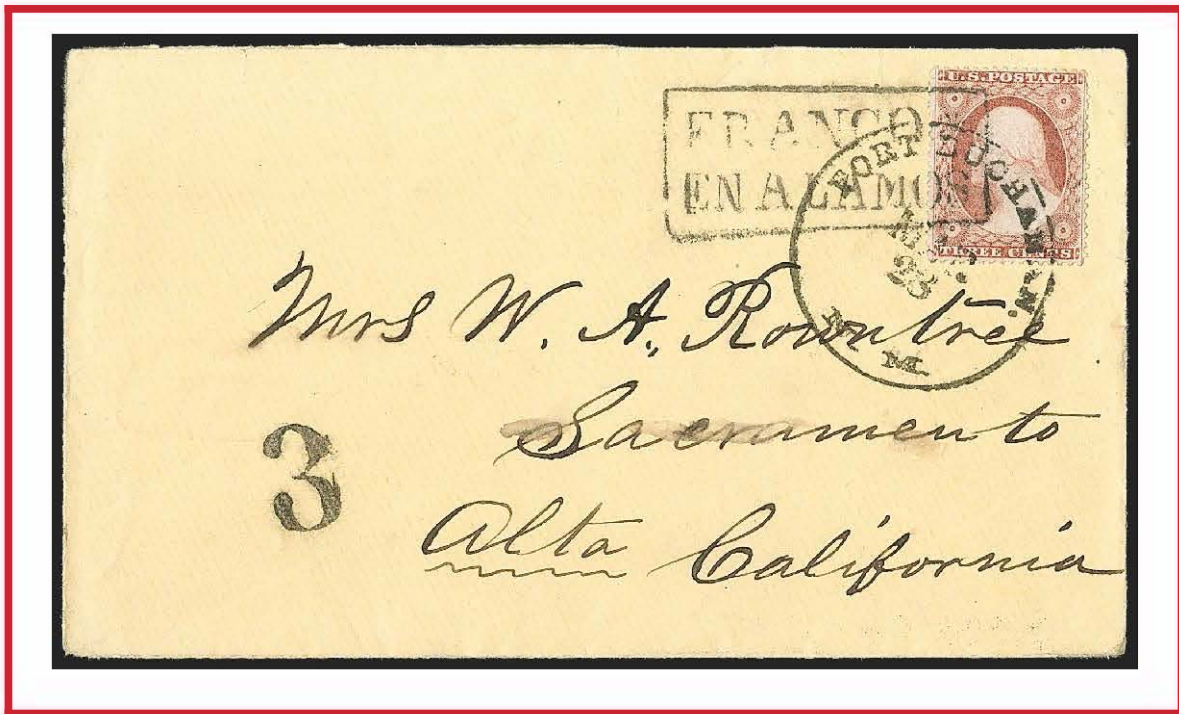 U.S. POSTAGE
THREE CENTS
FRANCO
EN ALAMOS
FORT BUCHANAN.
MAR
23
N. M.
Mrs W. A. Rowntree
Sacramento
Alta California
3